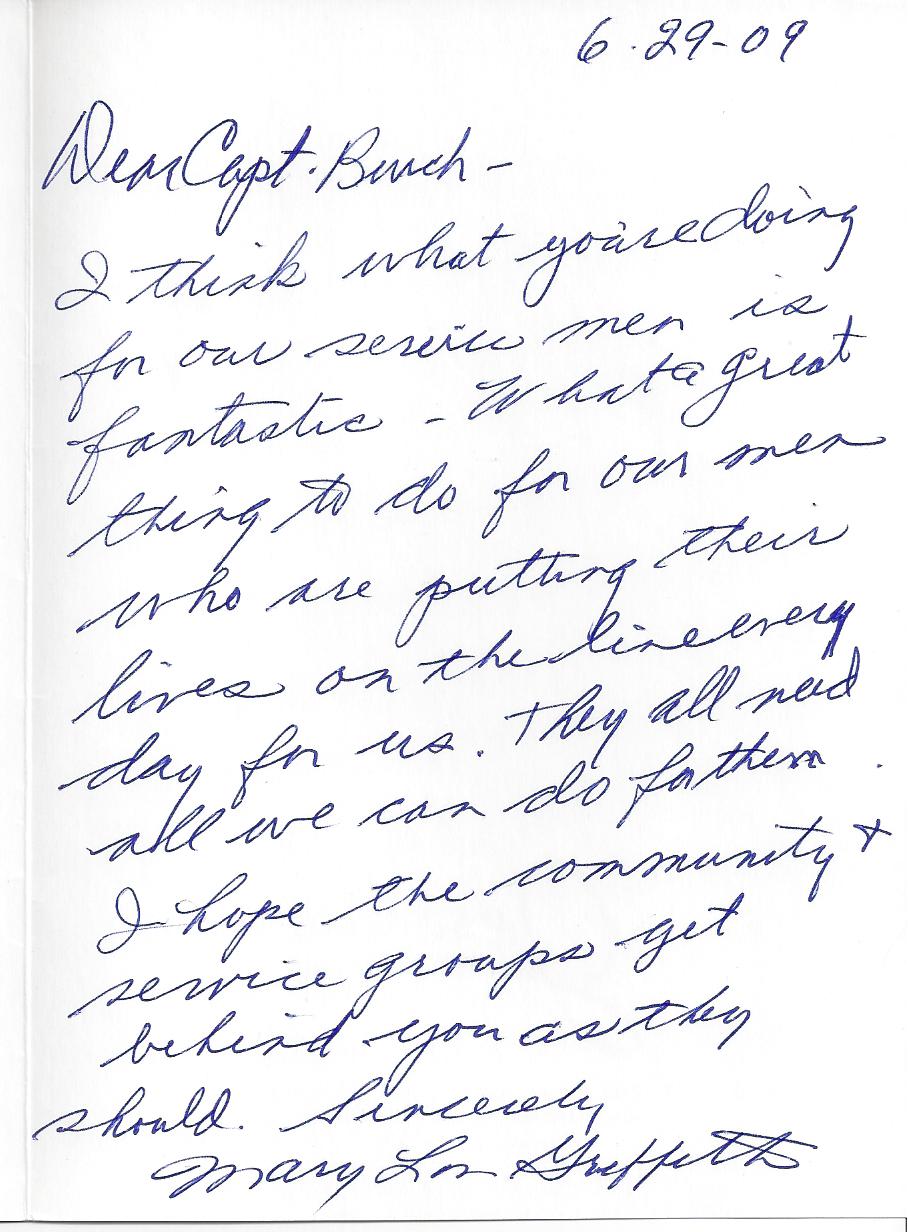 6.29-09
Dear Capt. Burch -
I think what you're doing
for our service men is
fantastic - What a great
thing to do for our men
who are putting their
lives on the line every
day for us. They all need
all we can do for them.
I hope the community +
service groups get
behind you as they
should. Sincerely
Mary Lou Griffith